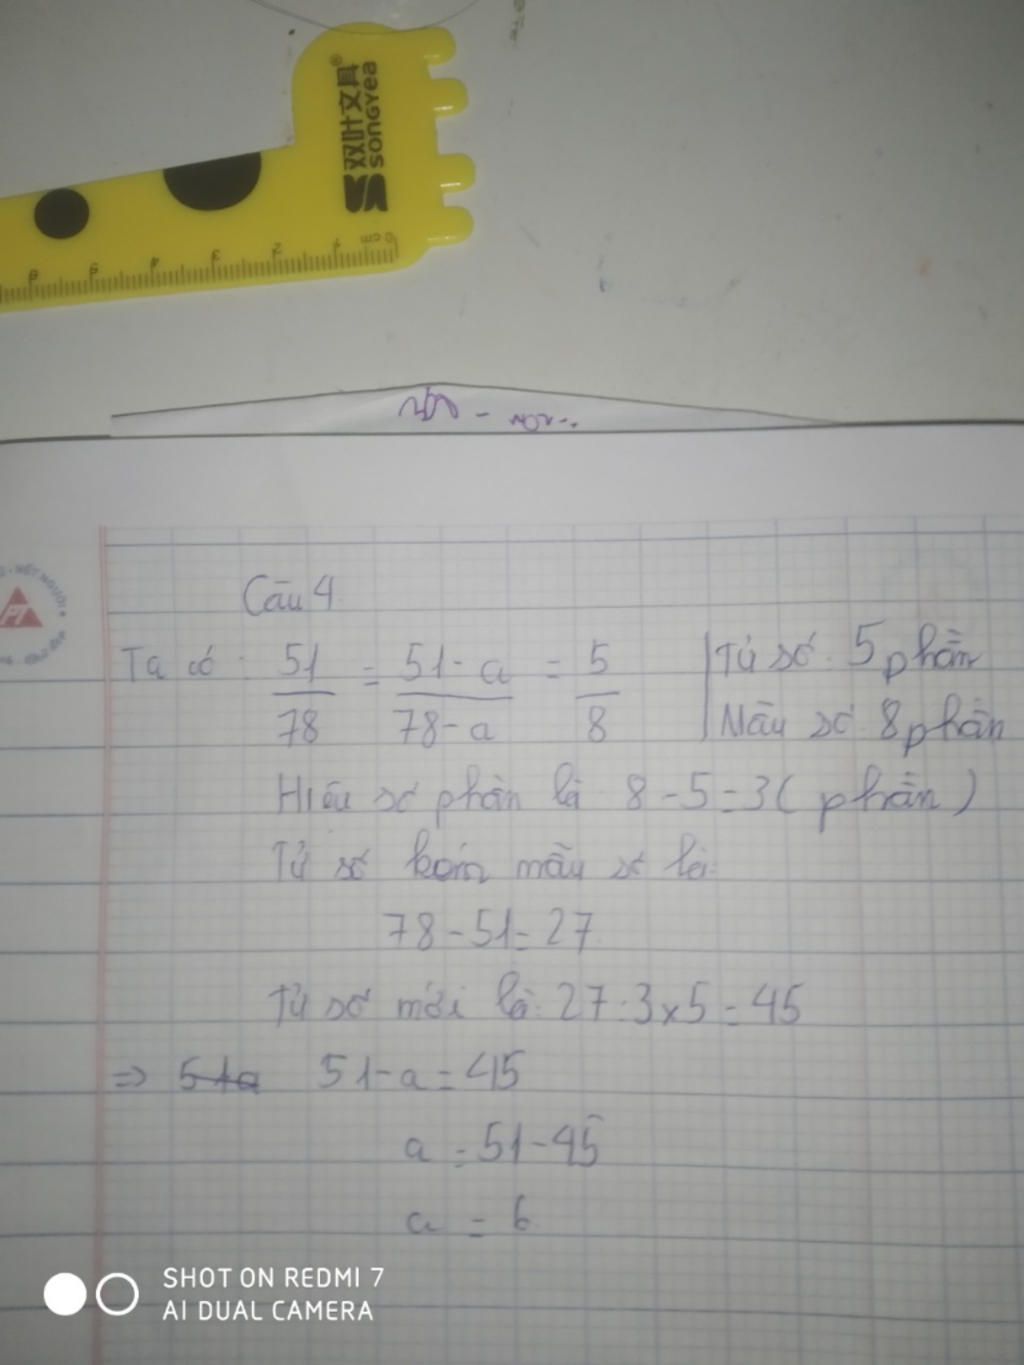 双叶文具®
SONGYea
0 cm 1 2 3 4 5 6
NÉT NGƯỜI
PT
Câu 4.
Ta có: 51/78 = 51-a/78-a = 5/8 | Tử số: 5 phần
Mẫu số: 8 phần
Hiệu số phần là: 8-5=3( phần )
Tử số kém mẫu số là:
78-51=27
Tử số mới là: 27:3x5=45
=> 51-a=45
a = 51-45
a = 6
SHOT ON REDMI 7
AI DUAL CAMERA